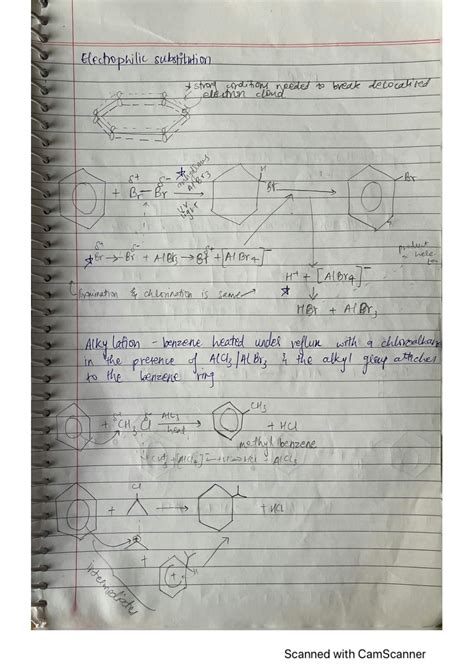 Electrophilic substitution
* strong conditions needed to break delocalised
electron cloud
δ+ δ-
+ Br—Br
* anhydrous
AlBr3
UV
light
H
Br
Br
δ+ δ-
* Br→Br + AlBr3 → Br + [AlBr4]-
H+ + [AlBr4]-
*
HBr + AlBr3
product
bromination & chlorination is same
Alkylation - benzene heated under reflux with a chloroalkane
in the presence of AlCl3/AlBr3 & the alkyl group attaches
to the benzene ring
+ δ+CH3 Clδ- AlCl3
heat
CH3
+ HCl
methyl benzene
HCl + AlCl3
Cl
+
+ HCl
+
+
H
Intermediates
Scanned with CamScanner